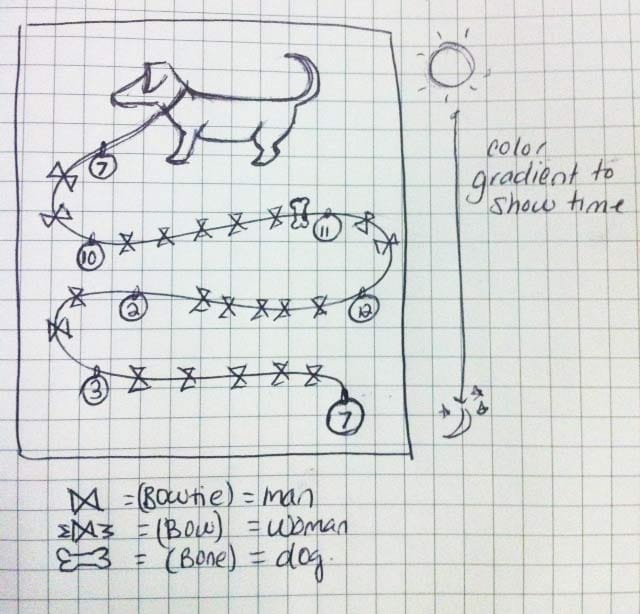 7
color
gradient to
show time
10
11
2
12
3
7
= (Bowtie) = man
= (Bow) = woman
= (Bone) = dog.